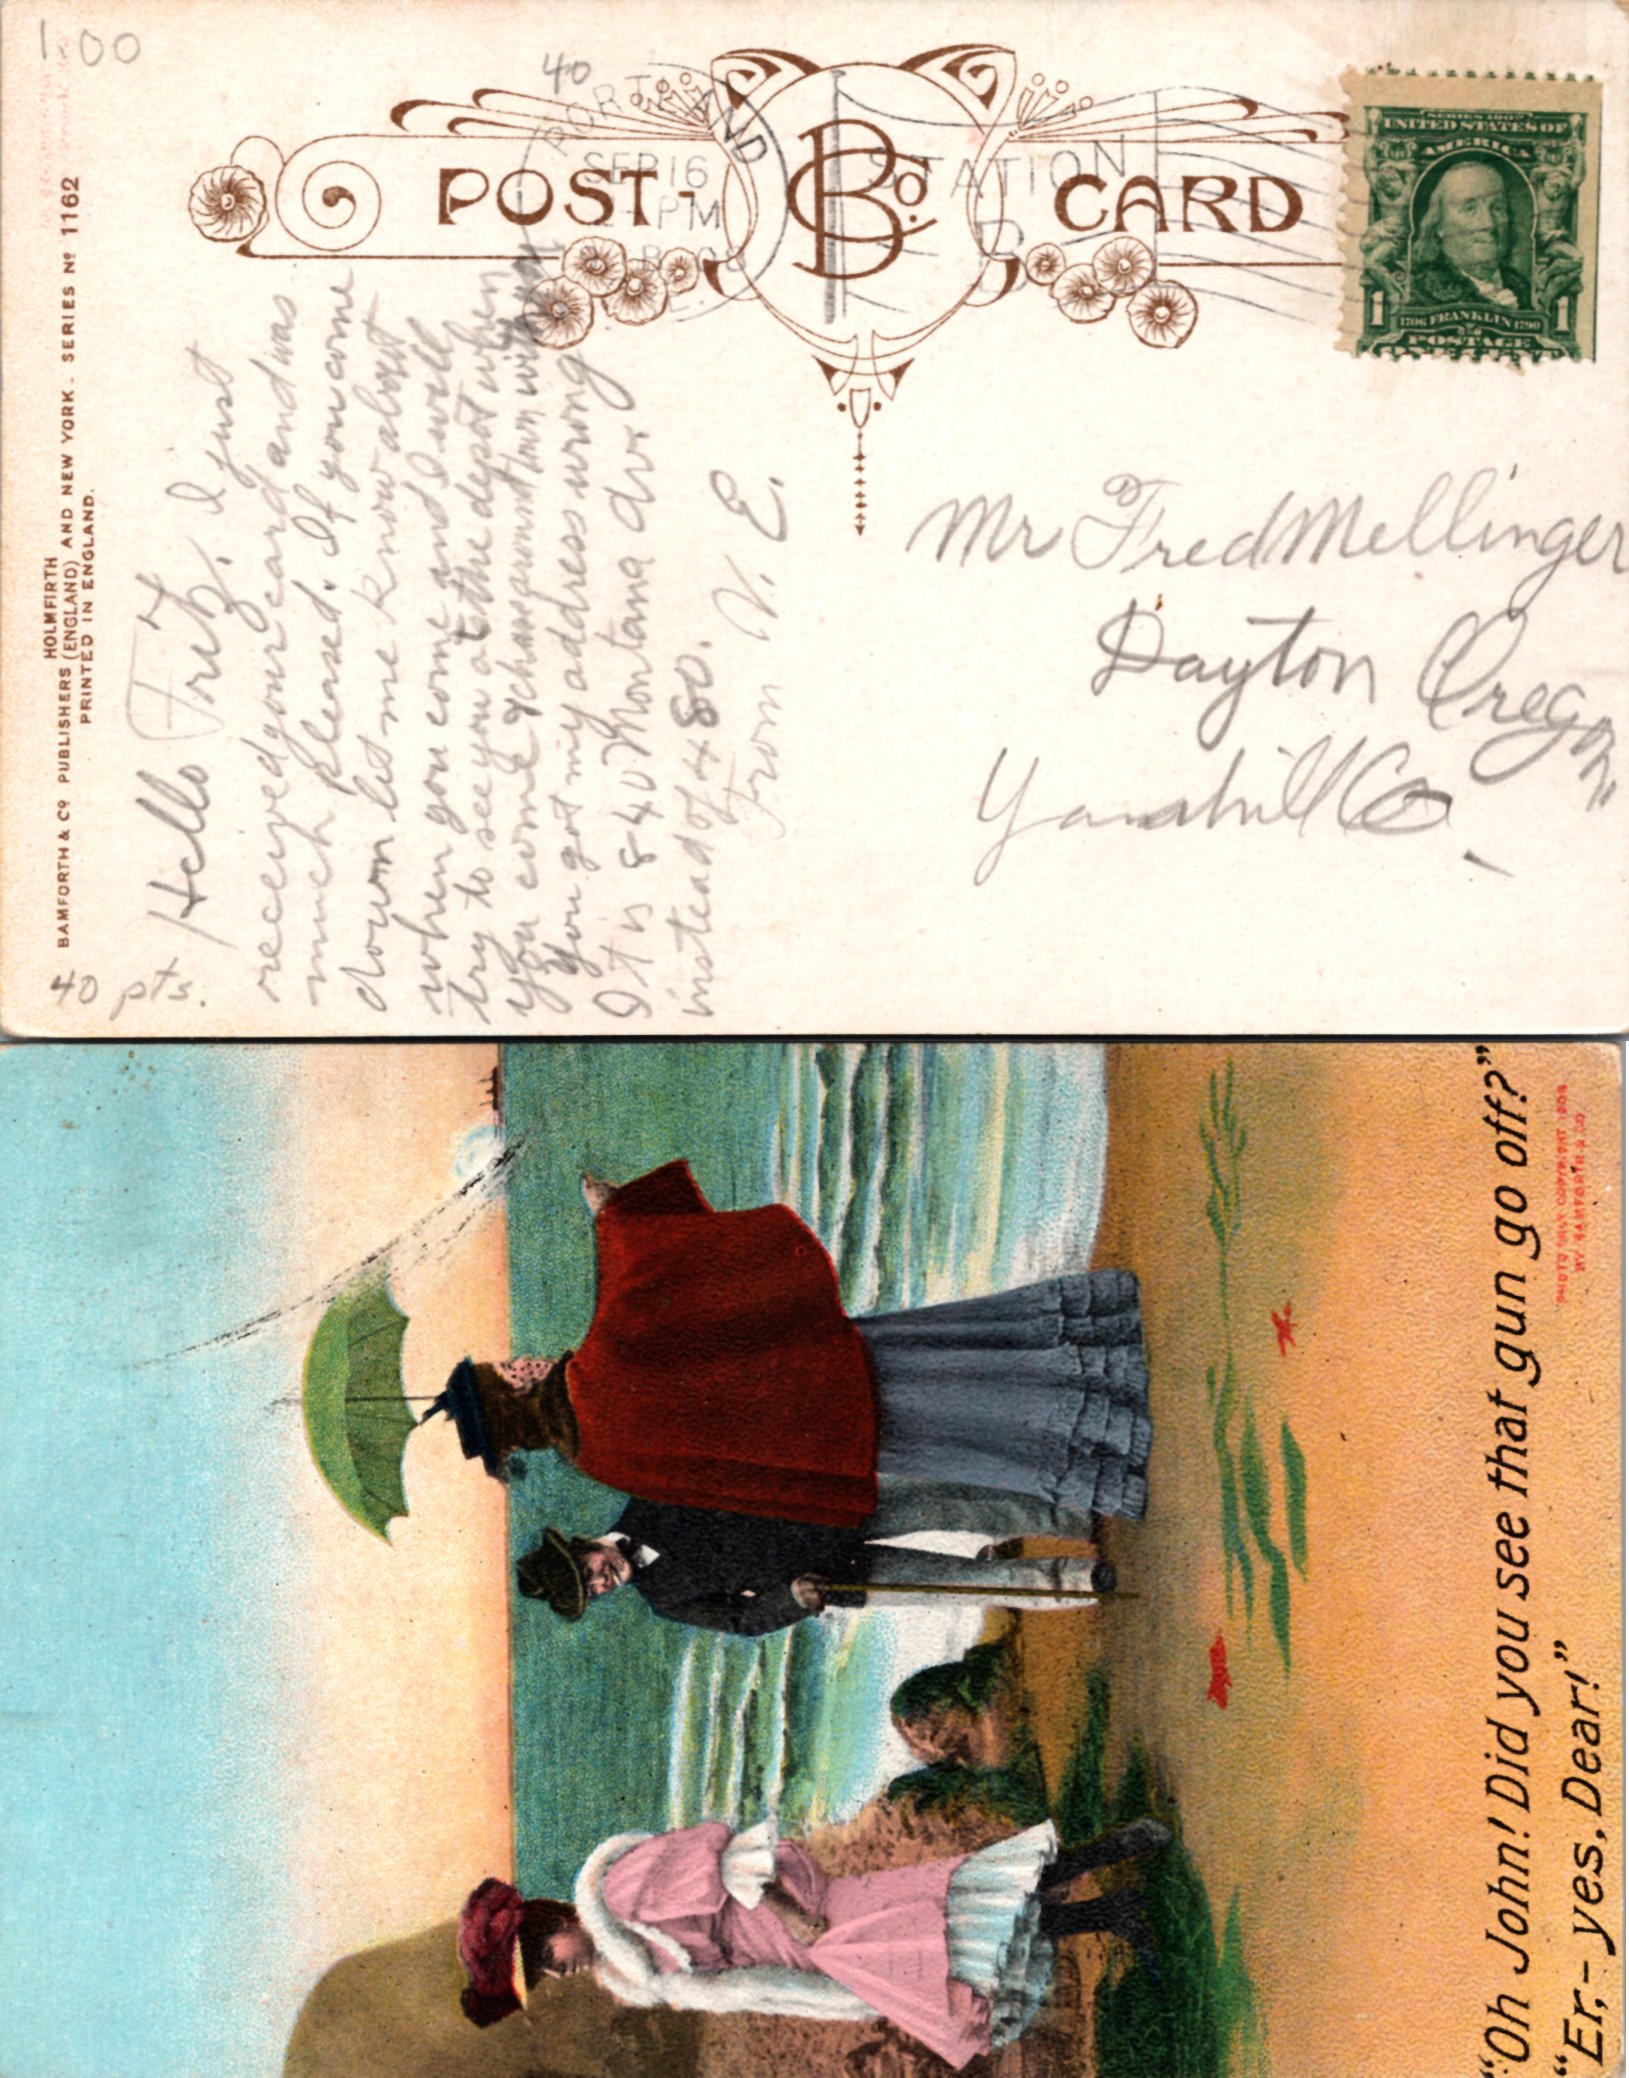 1.00
40
PORTLAND
SEP 16
PM
STATION
POST-CARD
BCo.
SERIES 1902
UNITED STATES OF
AMERICA
1 1706 FRANKLIN 1790 1
POSTAGE
HOLMFIRTH
BAMFORTH & Co PUBLISHERS (ENGLAND) AND NEW YORK. SERIES No 1162
PRINTED IN ENGLAND.
40 pts.
Hello Fritz. I just
received your card and was
much pleased. If you come
down let me know about
when you come and I will
try to see you at the depot when
you come
you got my address wrong
It is 840 Montana Av.
instead of 480.
From V. E.
Mr Fred Mellinger
Dayton Oregon
Yamhill Co.
"Oh John! Did you see that gun go off?"
"Er,- yes, Dear!"
PHOTO ONLY COPYRIGHT 1908
BY BAMFORTH & CO